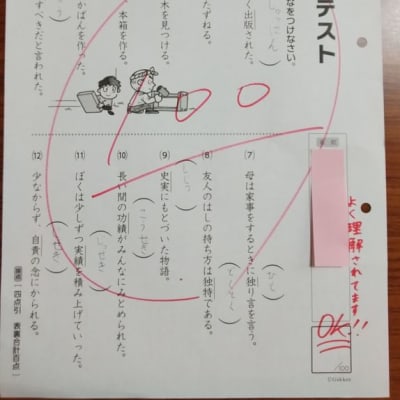 テスト
なをつけなさい。
く出版された。
たずねる。
木を見つける。
本箱を作る。
かばんを作った。
すべきだと言われた。
100
⑺ 母は家事をするときに独り言を言う。
(ひと)
⑻ 友人のはしの持ち方は独特である。
(どくとく)
⑼ 史実にもとづいた物語。
(しじつ)
⑽ 長い間の功績がみんなにみとめられた。
(こうせき)
⑾ ぼくは少しずつ実績を積み上げていった。
(じっせき)
⑿ 少なからず、自責の念にかられる。
よく理解されてます!!
OK!!
/100
©Gakken
採点 一四点引 表裏合計百点